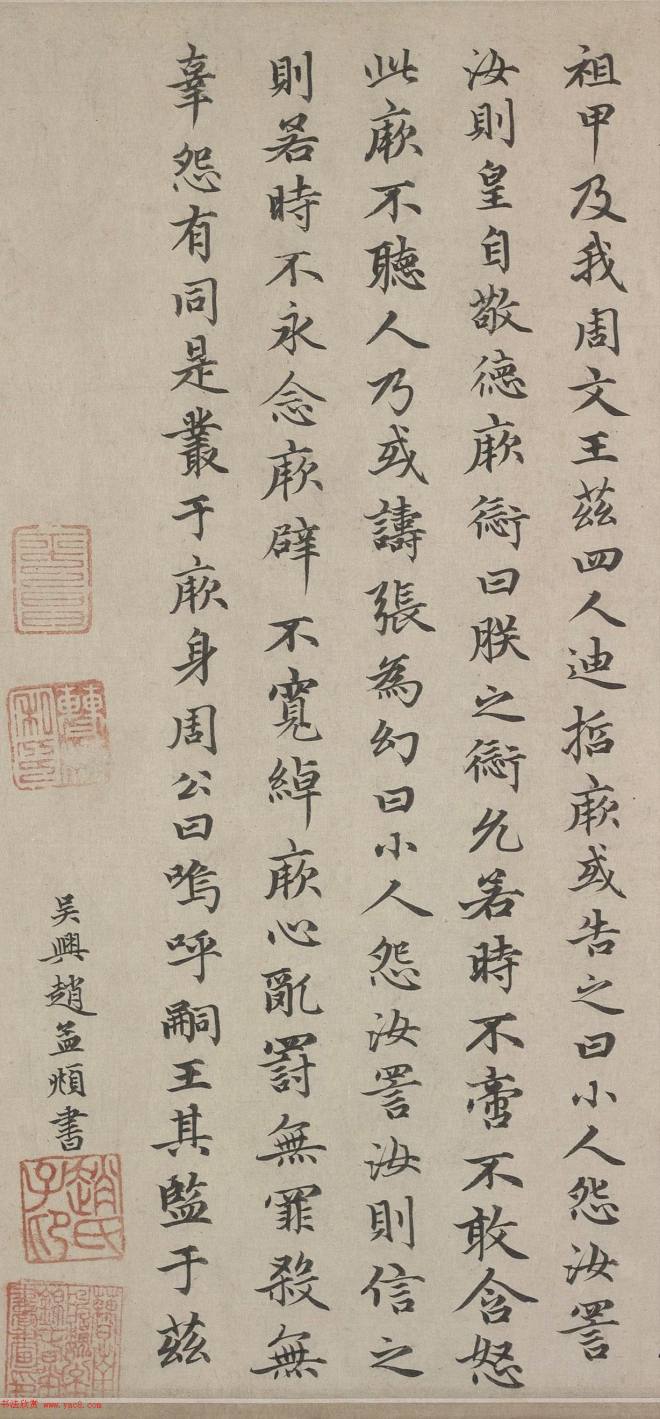 祖甲及我周文王茲四人迪哲厥或告之曰小人怨汝詈
汝則皇自敬德厥愆曰朕之愆允若時不啻不敢含怒
此厥不聽人乃或譸張為幻曰小人怨汝詈汝則信之
則若時不永念厥辟不寬綽厥心亂罰無罪殺無
辜怨有同是叢于厥身周公曰嗚呼嗣王其監于茲
吳興趙孟頫書
趙氏子印
书法欣赏 www.yac8.com